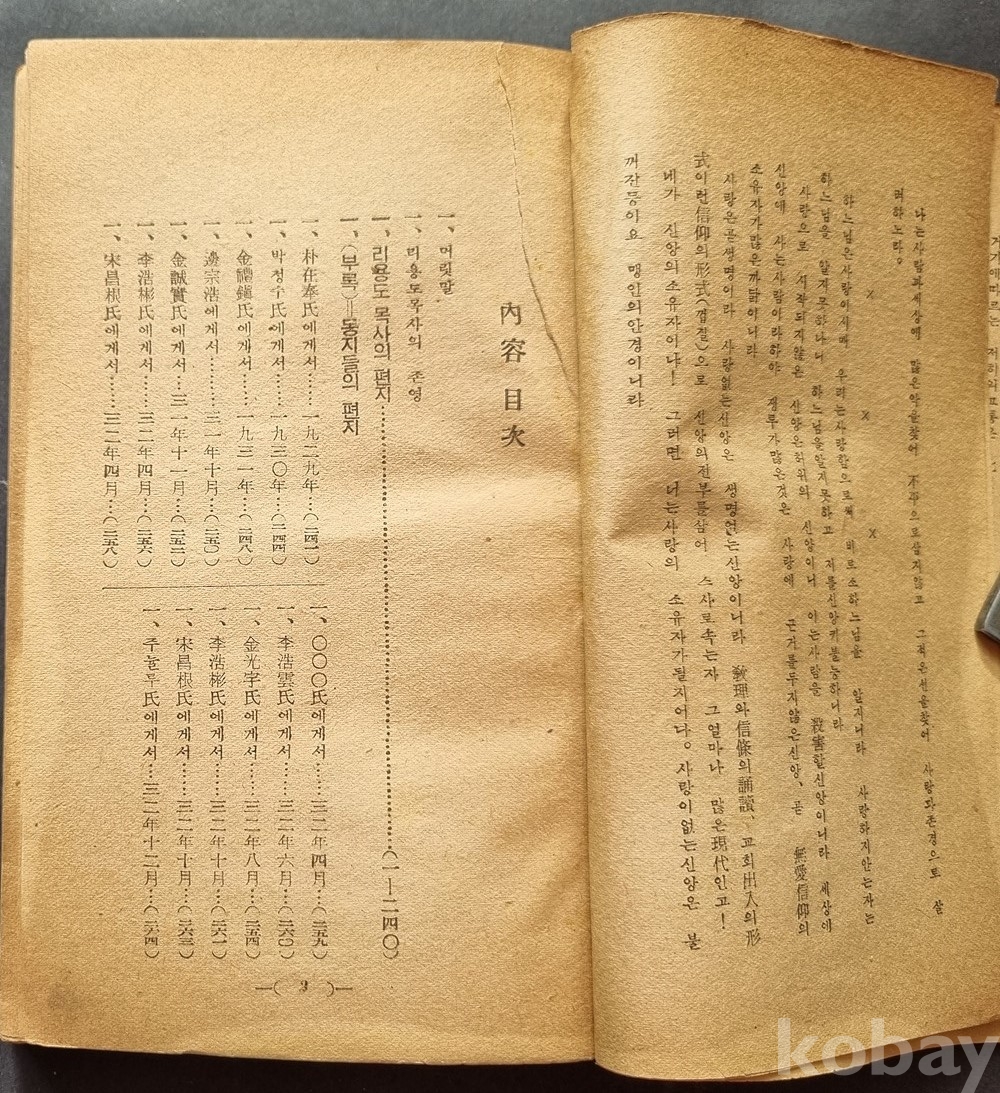 거기에따르는
나는사람과세상에 많은악을찾어 不平으로살지않고 그적은선을찾어 사랑과존경으로 살
려하노라。
X X X
하느님은사랑이시매 우리는사랑함으로써 비로소하느님을 알지니라 사랑하지안는자는
하느님을 알지못하나니 하느님을알지못하고 저를신앙키불능하니라
사랑으로 시작되지않은 신앙은허위의 신앙이니 이는사람을 殺害할신앙이니라 세상에
신앙에 사는사람이라하야 쟁투가많은것은 사랑에 근거를두지않은신앙、곧 無愛信仰의
소유자가많은까닭이니라
사랑은곧생명이라 사랑없는신앙은 생명없는신앙이니라 敎理와信條의誦讀、교회出入의形
式이런信仰의形式(껍절)으로 신앙의전부를삼어 스사로속는자 그얼마나 많은現代인고!
네가 신앙의소유자이냐! 그러면 너는사랑의 소유자가될지어다。사랑이없는신앙은 불
꺼진등이요 맹인의안경이니라
內容目次
一、머릿말
一、리용도목사의 존영
一、리용도목사의 편지……(一—二四〇)
一、(부록)=동지들의 편지
一、朴在奉氏에게서……一九二九年…(二四一)
一、박정수氏에게서……一九三〇年…(二四四)
一、金禮鎭氏에게서……一九三一年…(二四八)
一、邊宗浩에게서……三一年十月…(二五〇)
一、金誠實氏에게서……三一年十一月…(二五二)
一、李浩彬氏에게서……三二年四月…(二五六)
一、宋昌根氏에게서……三二年四月…(二五八)
一、〇〇〇氏에게서……三二年四月…(二五九)
一、李浩雲氏에게서……三二年六月…(二六〇)
一、金光宇氏에게서……三二年八月…(二五四)
一、李浩彬氏에게서……三二年十月…(二六一)
一、宋昌根氏에게서……三二年十月…(二六三)
一、주눌투氏에게서……三二年十二月…(二六四)
—( 3 )—
kobay